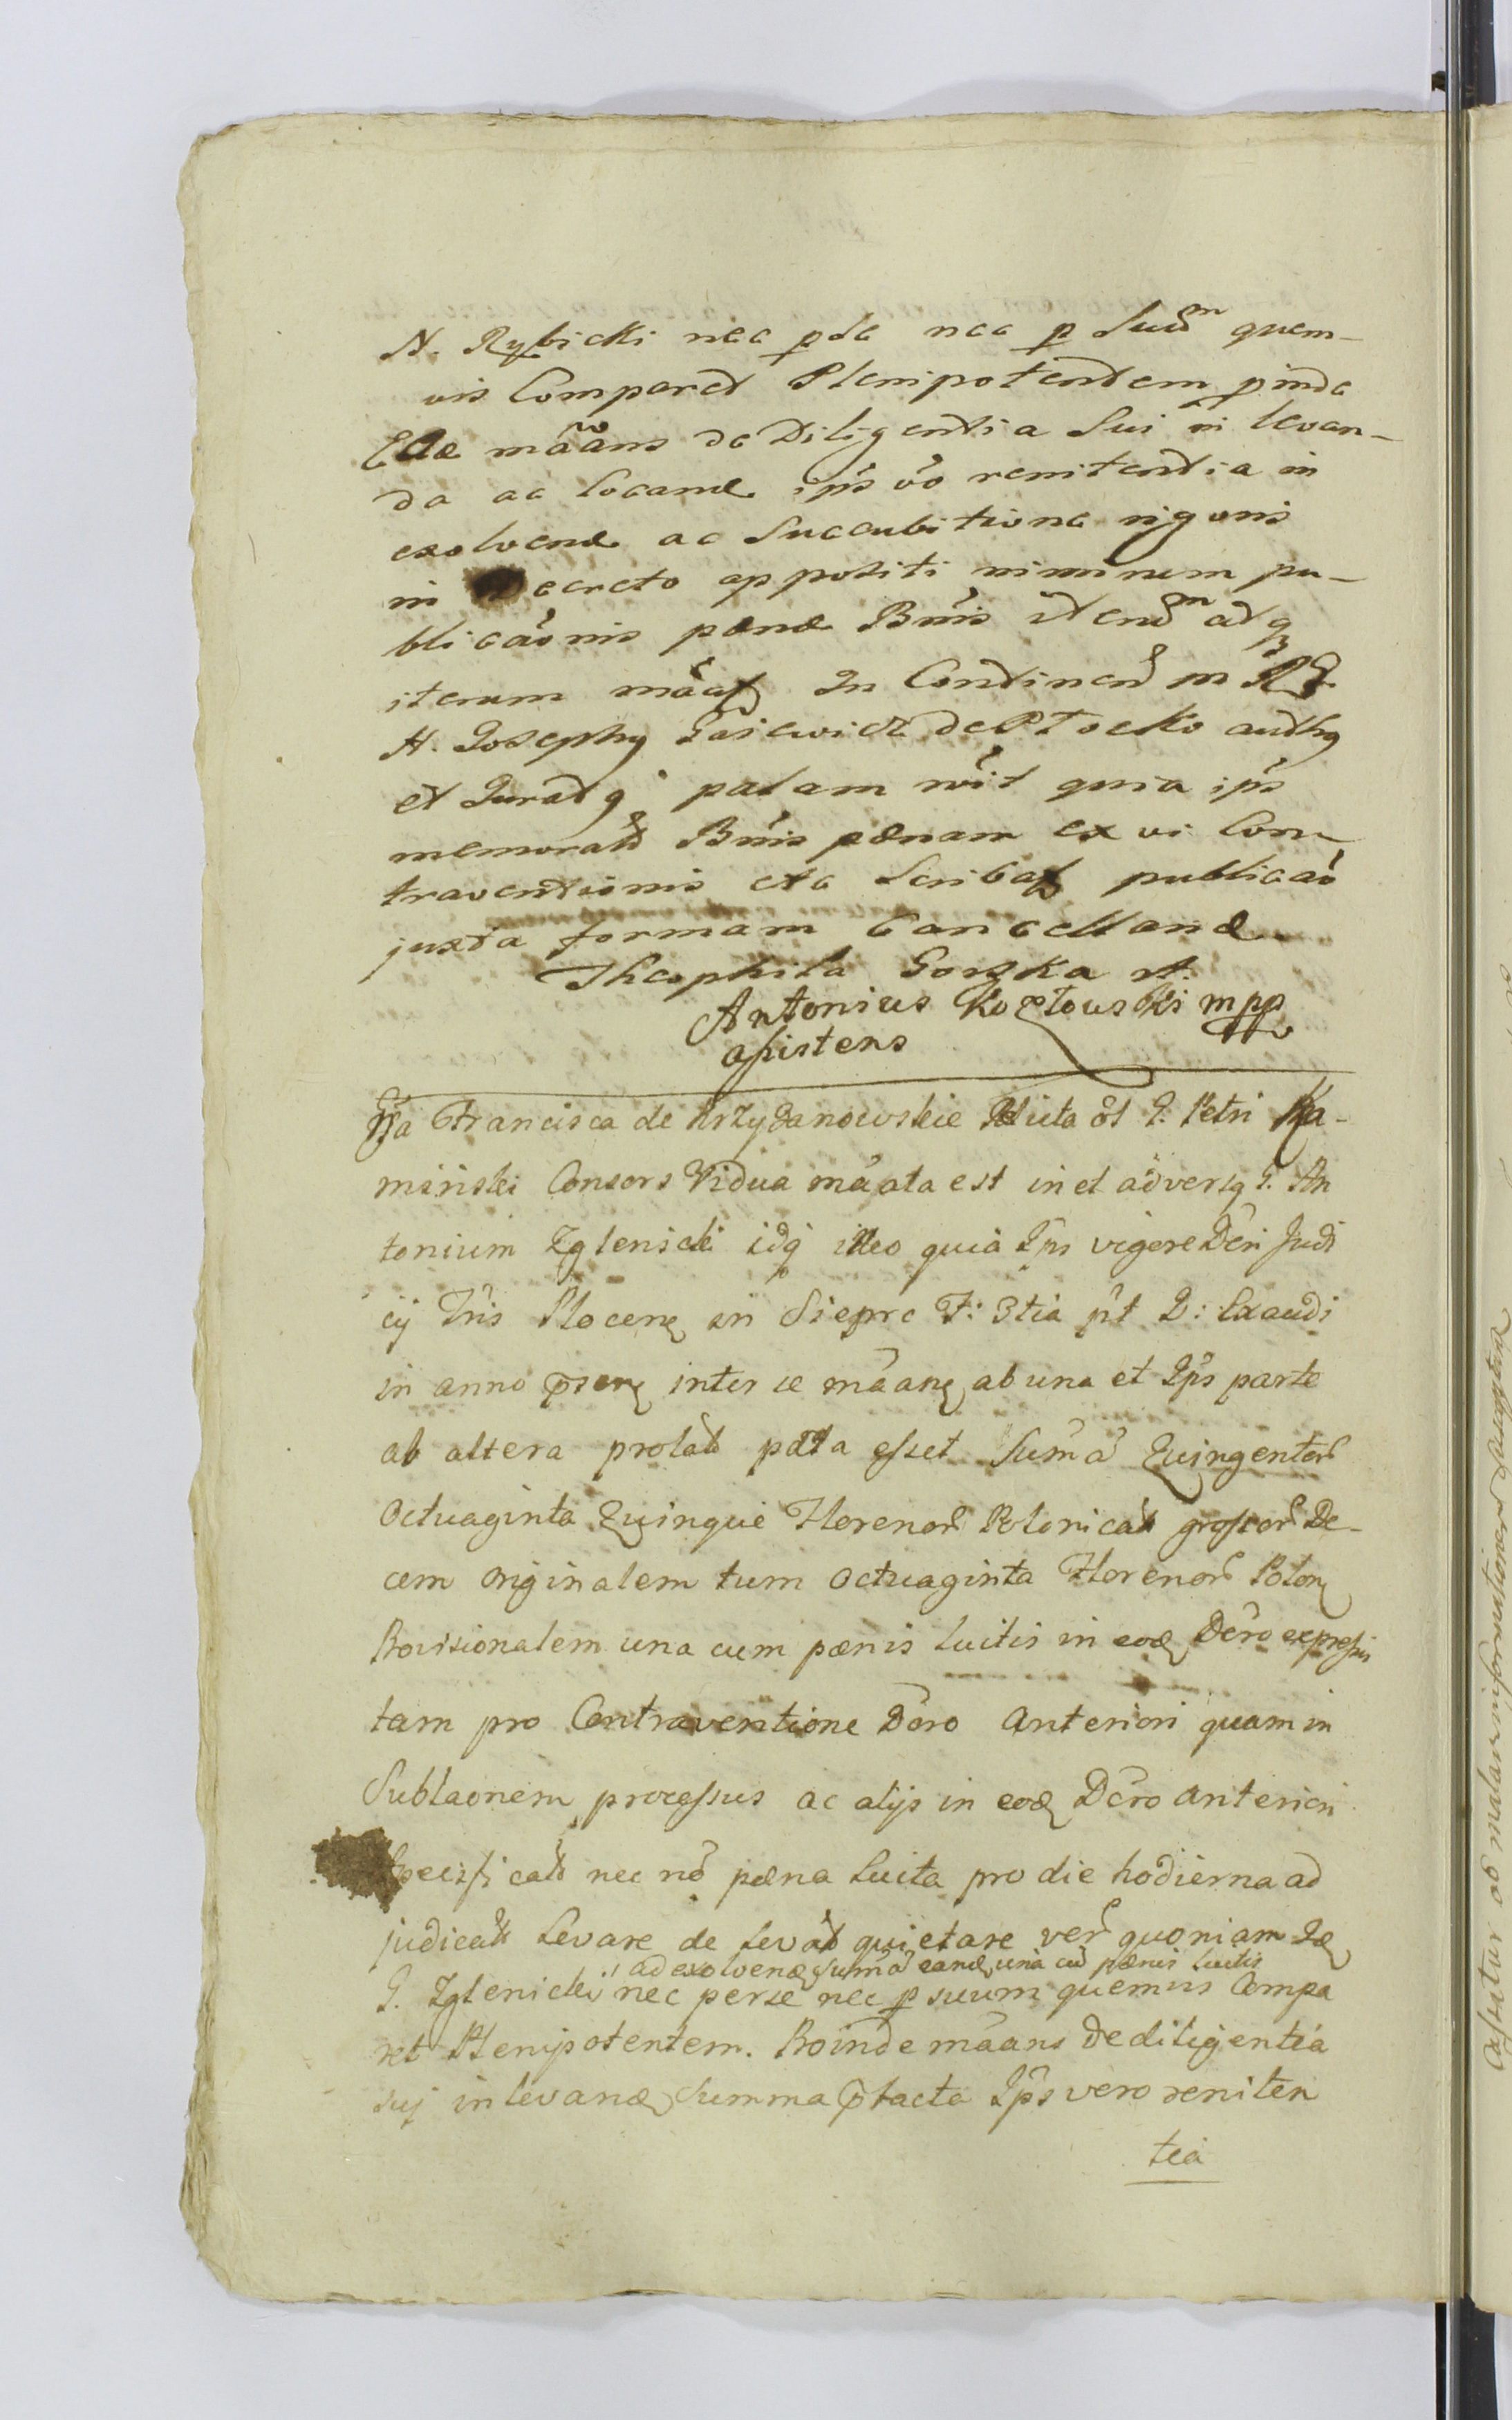 N. Rybicki nec p se nec p suum quem-
vis Comparet Plenipotentem pinde
Eade mãans de Diligentia Sui in levan-
da ac locand ips vo renitentia in
exolvend ac Succubitione rigoris
in Decreto appositi miminum pu-
blicãonis pænæ Bnis itend atq
iterum mãat In Continend m RG
H. Josephg Gasiewicz de Płocko authg
et Juratg palam rcit quia ips
memorat Bnis pænam ex vi Con-
traventionis etc Scribat publicão
juxta formam Cancellariæ
Theophila Gorzka A.
Antonius Kozłowski mpp
assistens
Gsa Francisca de Krzyżanowskie olt G. Petri Ka-
miński Consors Vidua mãata est in et adversg G. An
tonium Zglenicki idq ideo quia Ips vigore Dcri Judi
cij Tris Plocens in Sieprc F: 3tia pt D: Exaudi
in anno psenq inter se mãanq ab una et Ips parte
ab altera prolat pata esset Summã Quingentor
Octuaginta Quinque Florenor Polonicalt grossor De-
cem Originalem tum Octuaginta Florenor Polonq
Provisionalem una cum pænis luitis in eodq Dcro expressis
tam pro Contraventione Dcro Anteriori quam in
Sublaonem processus ac alijs in eodq Dcro anteriori
specificatt nec nõ pæna luita pro die hodierna ad
judicatt Levare de levat quietare ver quoniam Idq
ad exolvendq summã eandq una cũ pænis luitis
G. Zglenicki nec perse nec p suum quemvis Compa
ret Plenipotentem. Proinde mãans de diligentia
sui in levandq Summa ptacta Ips vero reniten
tia